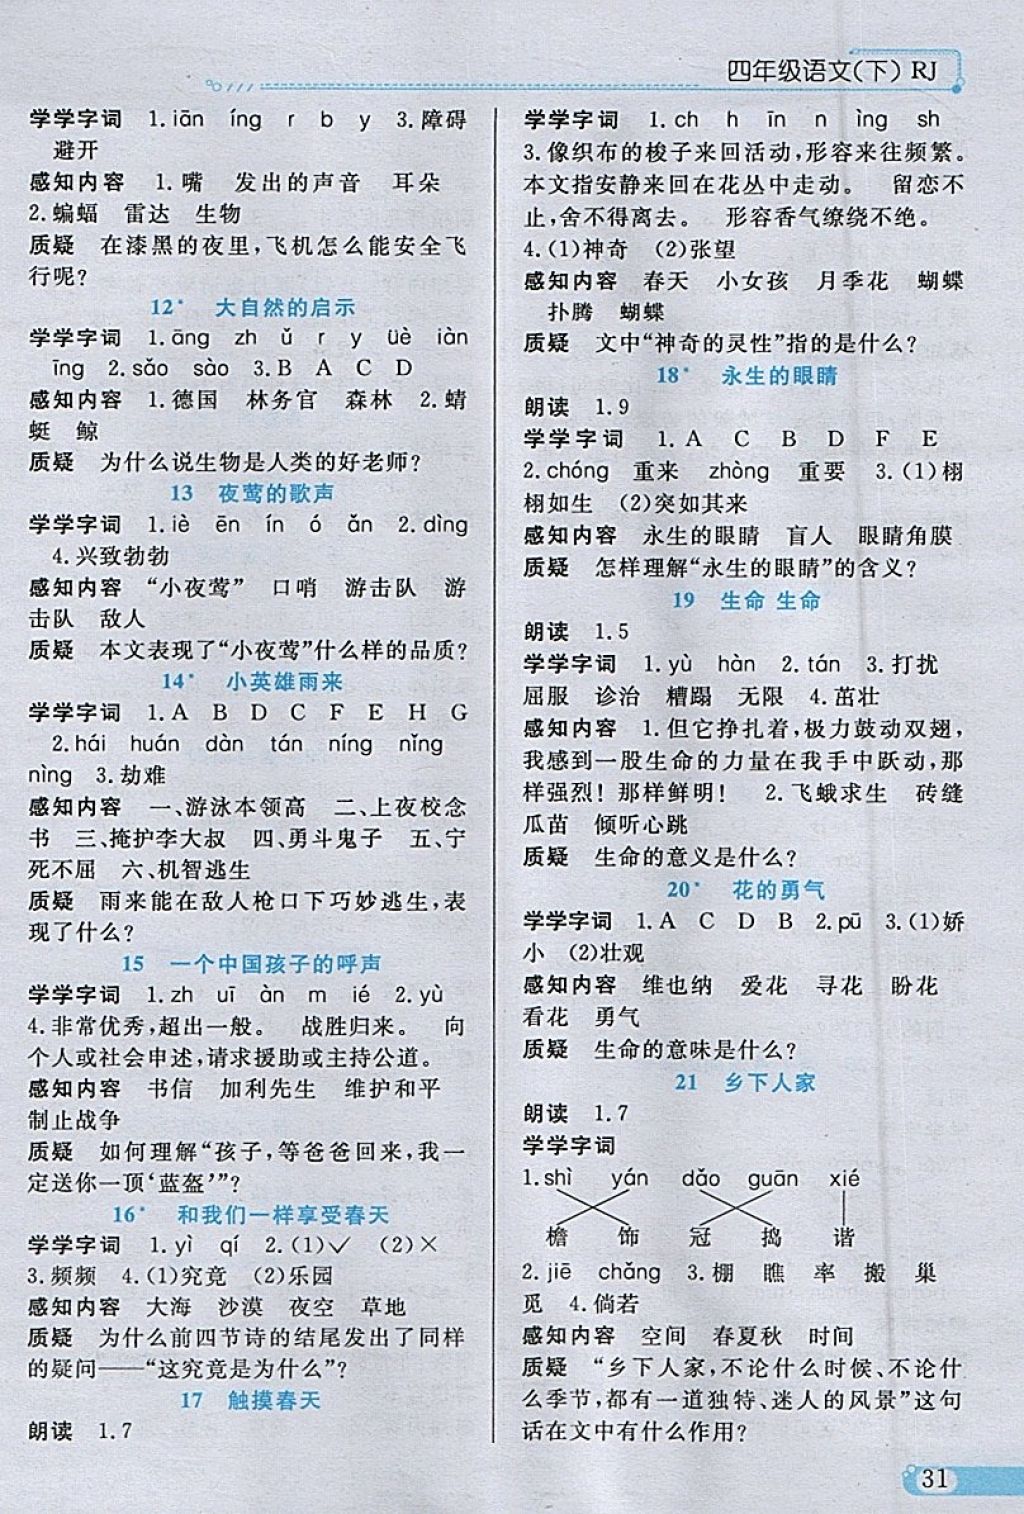 四年级语文(下) RJ
学学字词 1.iān íng r b y 3.障碍
避开
感知内容 1.嘴 发出的声音 耳朵
2.蝙蝠 雷达 生物
质疑 在漆黑的夜里,飞机怎么能安全飞
行呢?
12* 大自然的启示
学学字词 1.āng zh ǔ r y üè iàn
īng 2.sǎo sào 3.B A C D
感知内容 1.德国 林务官 森林 2.蜻
蜓 鲸
质疑 为什么说生物是人类的好老师?
13 夜莺的歌声
学学字词 1.iè ēn ín ó ǎn 2.dìng
4.兴致勃勃
感知内容 “小夜莺” 口哨 游击队 游
击队 敌人
质疑 本文表现了“小夜莺”什么样的品质?
14* 小英雄雨来
学学字词 1.A B D C F E H G
2.hái huán dàn tán níng nǐng
nìng 3.劫难
感知内容 一、游泳本领高 二、上夜校念
书 三、掩护李大叔 四、勇斗鬼子 五、宁
死不屈 六、机智逃生
质疑 雨来能在敌人枪口下巧妙逃生,表
现了什么?
15 一个中国孩子的呼声
学学字词 1.zh uī àn m ié 2.yù
4.非常优秀,超出一般。 战胜归来。 向
个人或社会申述,请求援助或主持公道。
感知内容 书信 加利先生 维护和平
制止战争
质疑 如何理解“孩子,等爸爸回来,我一
定送你一顶‘蓝盔’”?
16* 和我们一样享受春天
学学字词 1.yì qí 2.(1)✓ (2)×
3.频频 4.(1)究竟 (2)乐园
感知内容 大海 沙漠 夜空 草地
质疑 为什么前四节诗的结尾发出了同样
的疑问——“这究竟是为什么”?
17 触摸春天
朗读 1.7
学学字词 1.ch h īn n ìng sh
3.像织布的梭子来回活动,形容来往频繁。
本文指安静来回在花丛中走动。 留恋不
止,舍不得离去。 形容香气缭绕不绝。
4.(1)神奇 (2)张望
感知内容 春天 小女孩 月季花 蝴蝶
扑腾 蝴蝶
质疑 文中“神奇的灵性”指的是什么?
18* 永生的眼睛
朗读 1.9
学学字词 1.A C B D F E
2.chóng 重来 zhòng 重要 3.(1)栩
栩如生 (2)突如其来
感知内容 永生的眼睛 盲人 眼睛角膜
质疑 怎样理解“永生的眼睛”的含义?
19 生命 生命
朗读 1.5
学学字词 1.yù hàn 2.tán 3.打扰
屈服 诊治 糟蹋 无限 4.茁壮
感知内容 1.但它挣扎着,极力鼓动双翅,
我感到一股生命的力量在我手中跃动,那
样强烈!那样鲜明! 2.飞蛾求生 砖缝
瓜苗 倾听心跳
质疑 生命的意义是什么?
20* 花的勇气
学学字词 1.A C D B 2.pū 3.(1)娇
小 (2)壮观
感知内容 维也纳 爱花 寻花 盼花
看花 勇气
质疑 生命的意味是什么?
21 乡下人家
朗读 1.7
学学字词
1.shì yán dǎo guān xié
檐 饰 冠 捣 谐
2.jiē chǎng 3.棚 瞧 率 搬 巢
觅 4.倘若
感知内容 空间 春夏秋 时间
质疑 “乡下人家,不论什么时候、不论什
么季节,都有一道独特、迷人的风景”这句
话在文中有什么作用?
31